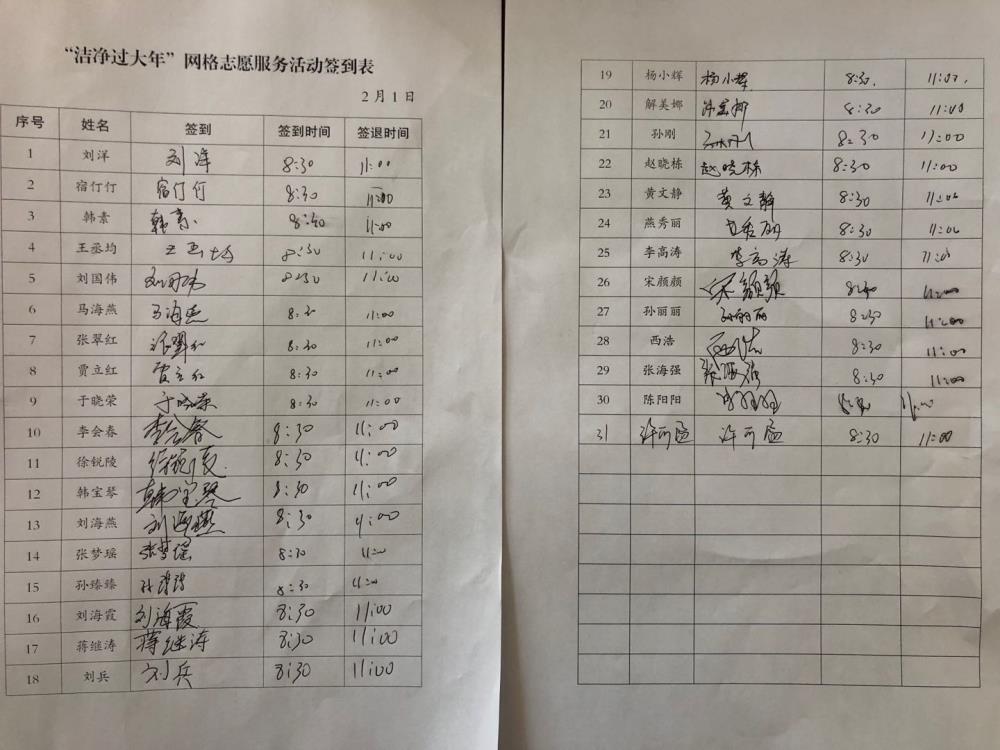 “洁净过大年”网格志愿服务活动签到表
2月1日
序号 姓名 签到 签到时间 签退时间
1 刘洋 刘洋 8:30 11:00
2 宿仃仃 宿仃仃 8:30 11:00
3 韩素 韩素 8:30 11:00
4 王丞均 王丞均 8:30 11:00
5 刘国伟 刘国伟 8:30 11:00
6 马海燕 马海燕 8:30 11:00
7 张翠红 张翠红 8:30 11:00
8 贾立红 贾立红 8:30 11:00
9 于晓荣 于晓荣 8:30 11:00
10 李会春 李会春 8:30 11:00
11 徐锐陵 徐锐陵 8:30 11:00
12 韩宝琴 韩宝琴 8:30 11:00
13 刘海燕 刘海燕 8:30 11:00
14 张梦瑶 张梦瑶 8:30 11:00
15 孙臻臻 孙臻臻 8:30 11:00
16 刘海霞 刘海霞 8:30 11:00
17 蒋继涛 蒋继涛 8:30 11:00
18 刘兵 刘兵 8:30 11:00
19 杨小辉 杨小辉 8:30. 11:00.
20 解美娜 解美娜 8:30 11:00
21 孙刚 孙刚 8:30 11:00
22 赵晓栋 赵晓栋 8:30 11:00
23 黄文静 黄文静 8:30 11:00
24 燕秀丽 燕秀丽 8:30 11:00
25 李高涛 李高涛 8:30 11:00
26 宋颜颜 宋颜颜 8:30 11:00
27 孙丽丽 孙丽丽 8:30 11:00
28 西浩 西浩 8:30 11:00
29 张海强 张海强 8:30 11:00
30 陈阳阳 8:30 11:00
31 许可 许可 8:30 11:00